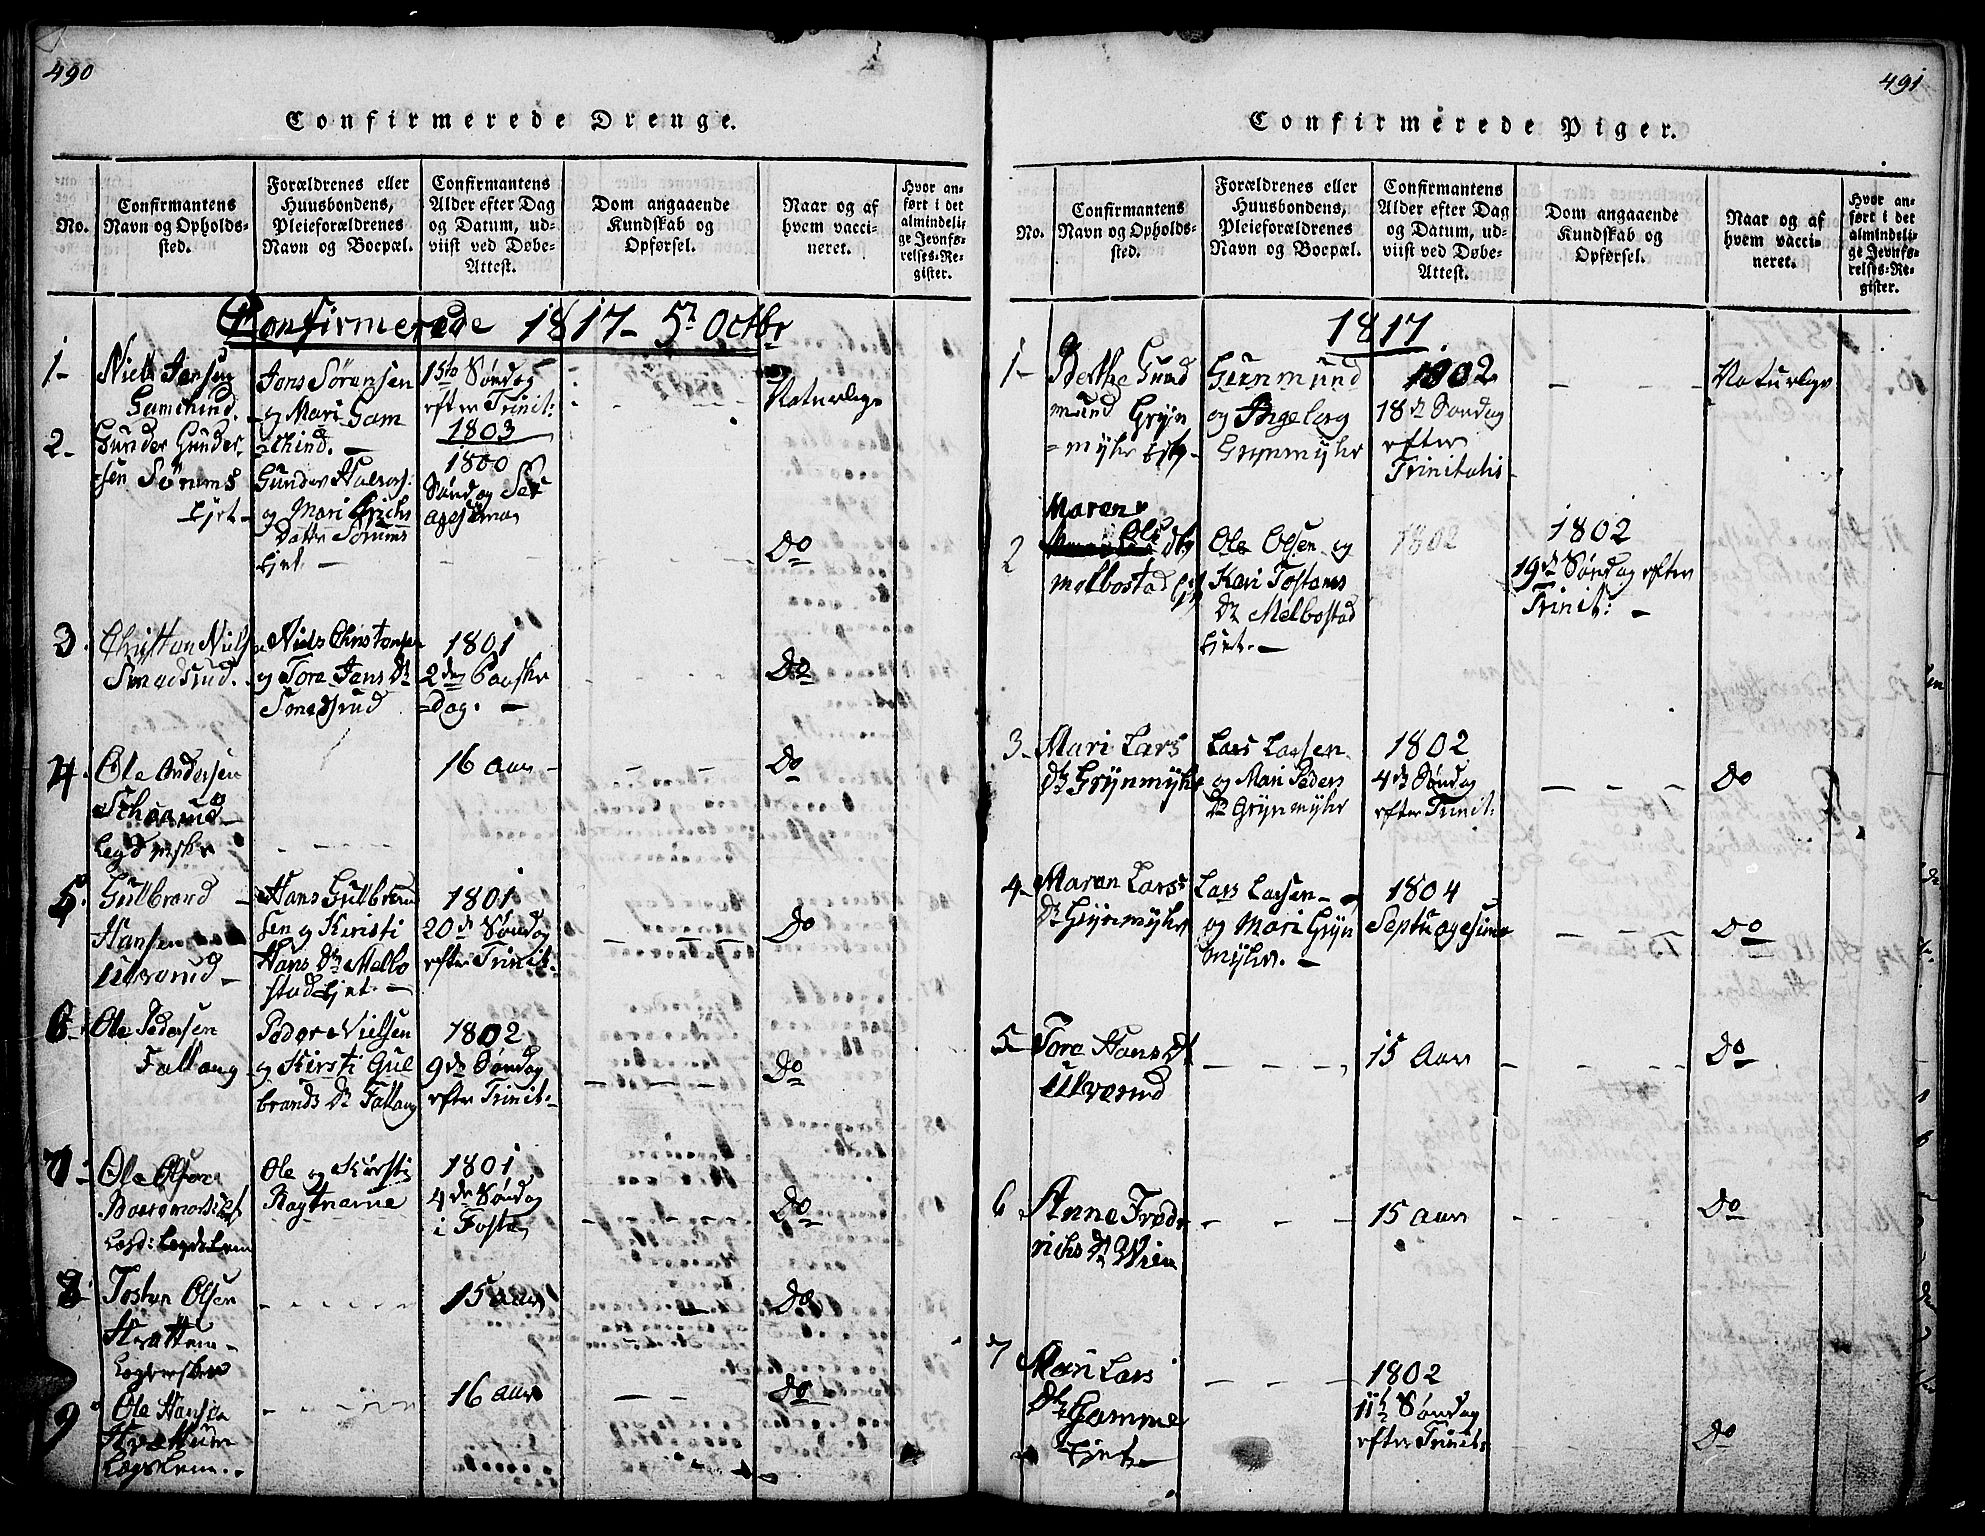 490
Confirmerede Drenge.
No.
Confirmantens
Navn og Opholds-
sted.
Forældrenes eller
Huusbondens,
Pleieforældrenes
Navn og Boepæl.
Confirmantens
Alder efter Dag
og Datum, ud-
viist ved Døbe-
Attest.
Dom angaaende
Kundskab og
Opførsel.
Naar og af
hvem vacci-
neret.
Hvor an-
ført i det
almindeli-
ge Jevnfø-
relses-Re-
gister.
Confirmerede 1817 - 5t Octbr
1-
Niels Jensen
Gamchind.
Jens Sörensen
og Mari Gam
=chind. -
15de Søndag
efter Trinit:
1803
Naturlige
2-
Gunder Gunder-
sen Sörums
Ejet-
Gunder Halvors:
og Mari Erichs
Datter Sörums
Ejet. -
1800
Søndag Sex
agesima
Do
3.
Christian Niels
Smedsrud.
Niels Christensen
og Tore Jens Dr
Smedsrud
1801
2den Paaske
=Dag. -
Do
4.
Ole Andersen
Schaarud-
Legdqvske
16 Aar
Do
5.
Gulbrand
Hansen
Ulvarud-
Hans Gulbran
sen og Kirsti
Hans Dr Melbo
stad Ejet. -
1801
20de Søndag
efter Trinit:
Do
6-
Ole Pedersen
Fallang
Peder Nielsen
og Kirsti Gul
brands Dr Fallang
1802
9de Søndag
efter Trinit:
Do
7-
Ole Olsen
Legd: Legdslem
Ole og Kirsti
1801
4de Søndag
i Faste
Do
8
Tosten Olsen
15 Aar
Do
9
Ole Hansen
Legslem.
16 Aar
Do
491
Confirmerede Piger.
No.
Confirmantens
Navn og Opholds-
sted.
Forældrenes eller
Huusbondens,
Pleieforældrenes
Navn og Boepæl.
Confirmantens
Alder efter Dag
og Datum, ud-
viist ved Døbe-
Attest.
Dom angaaende
Kundskab og
Opførsel.
Naar og af
hvem vacci-
neret.
Hvor an-
ført i det
almindeli-
ge Jevnfø-
relses-Re-
gister.
1817
1-
Berthe Gund
mund Gryn
=myhr
og Ingeborg
Grynmyhr
1802
18de Søndag
efter
Trinitatis
Naturlige
2
Maren
Ols
Melbostad
Ole Olsen og
Kari Tostens
Dr Melbostad
Ejet. -
1802
1802
19de Søndag efter
Trinit: -
3-
Mari Lars
Dr Grÿnmÿhr
Lars Larsen
og Mari Peders
Dr Grÿnmÿhr
1802
4de Søndag
efter Trinit:
Do
4-
Maren Lars
Dr Grÿnmÿhr
Lars Larsen -
og Mari Grÿn
mÿhr. -
1804
Septuagesima
Do
5-
Tore Hans Dr
Ulvarud
15 Aar
Do
6
Anne Frede
richs Dr Wien
15 Aar
Do
7
Mari Lars
Dr Gamme
Ejet -
1802
11te Søndag
efter Trinit:
Do